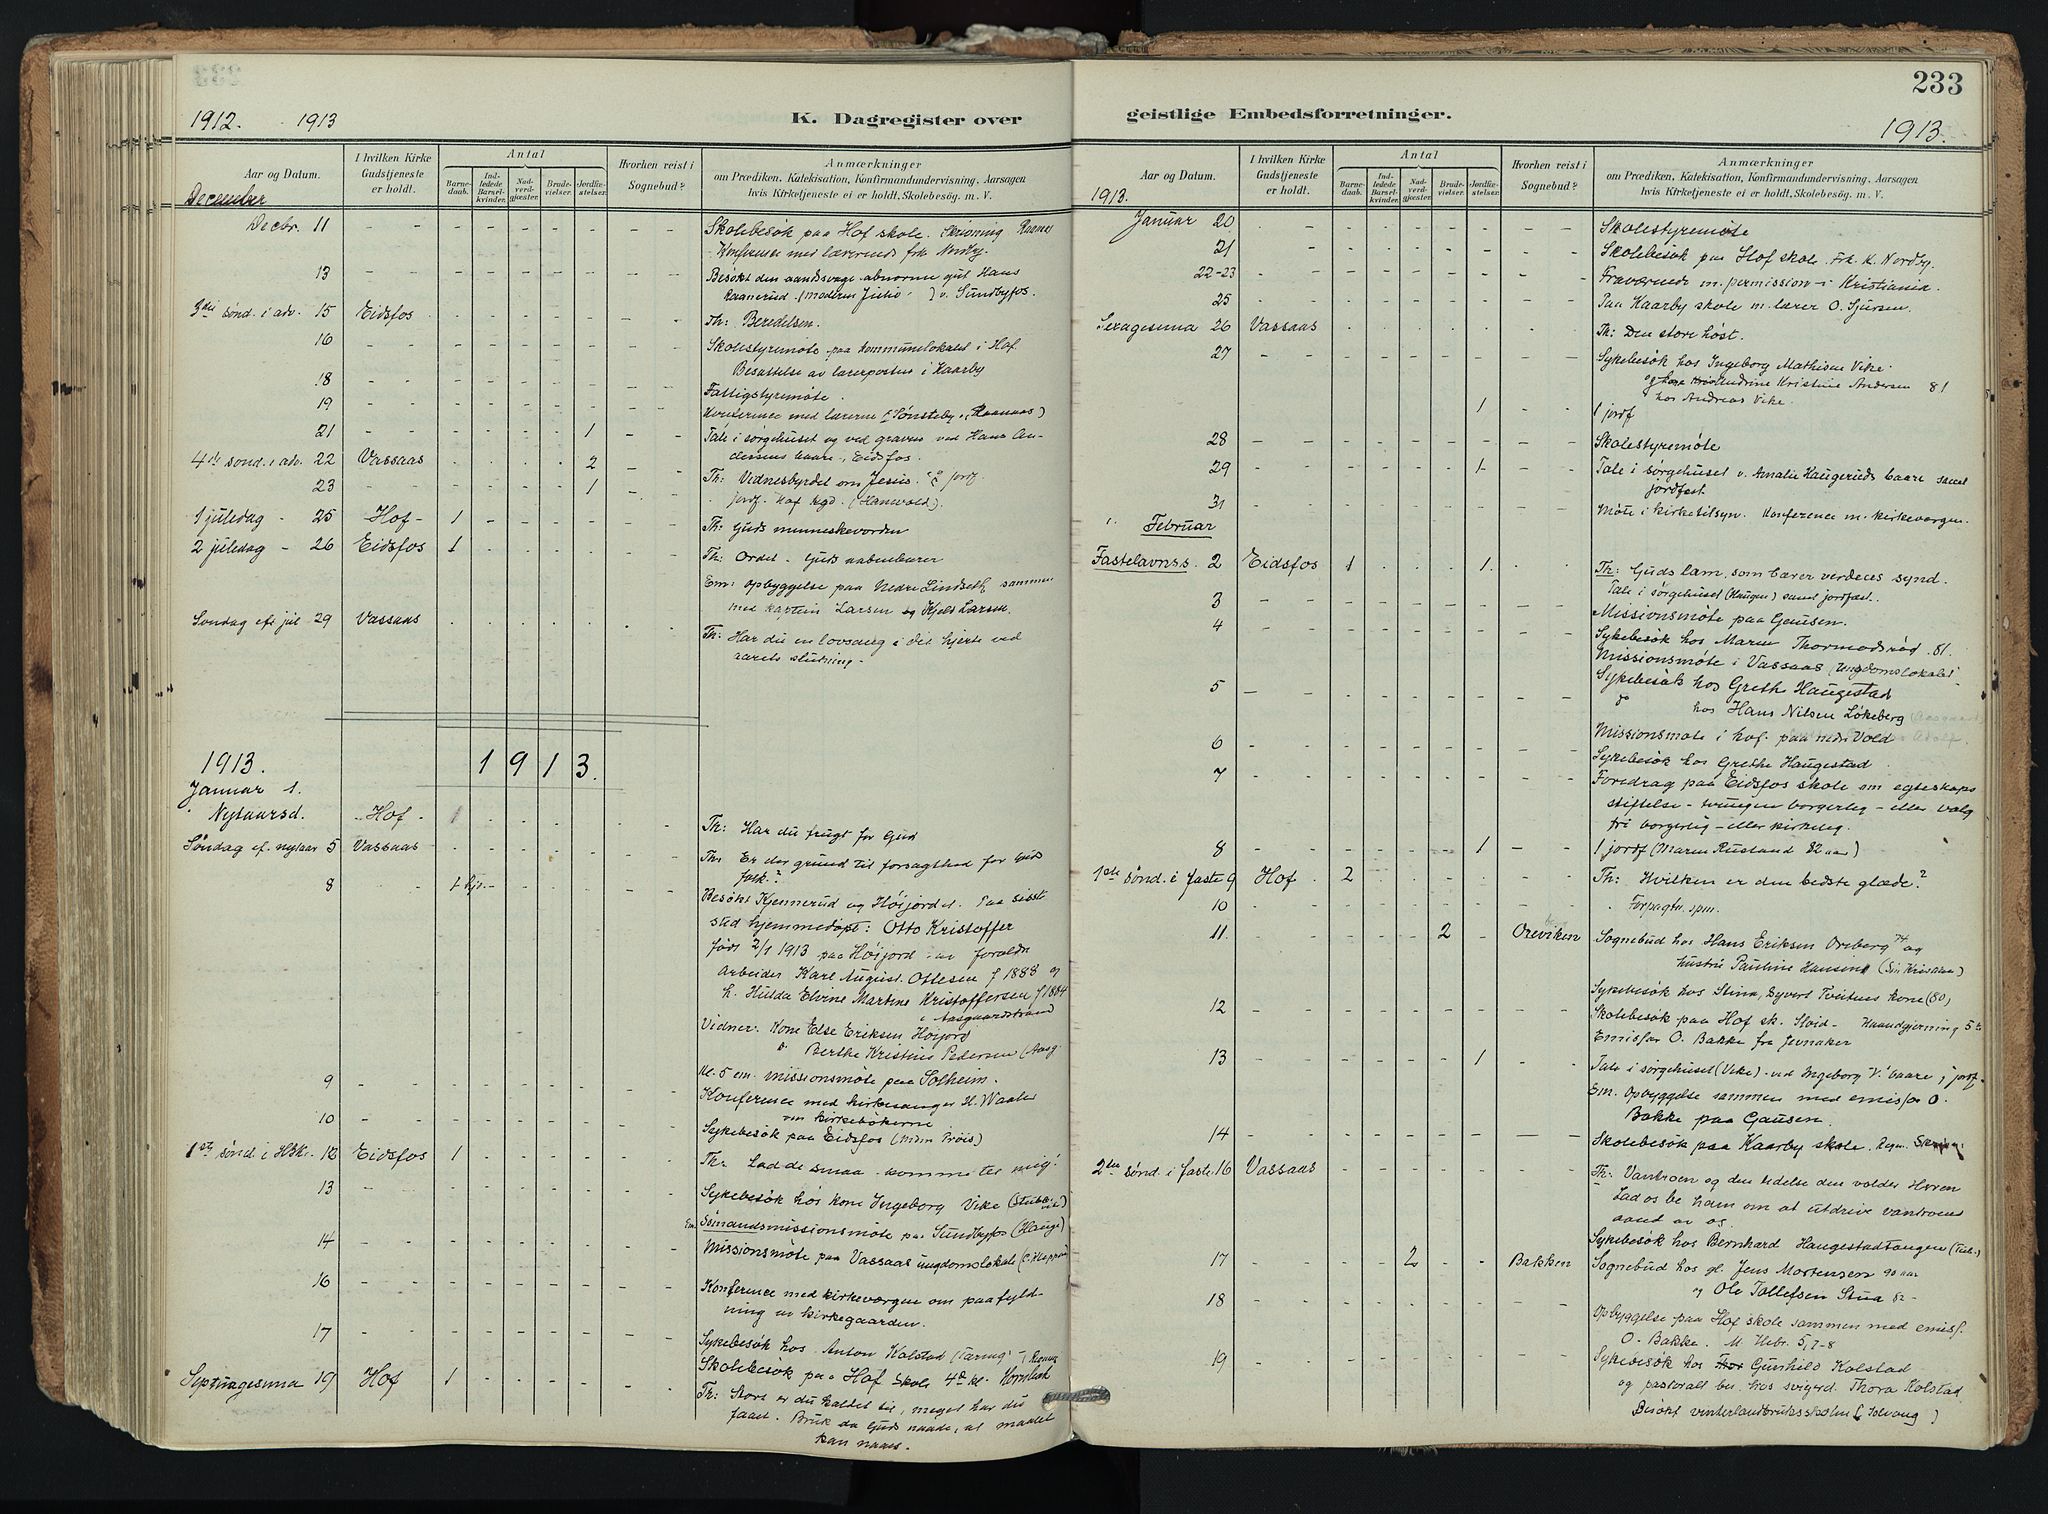 233
1912. 1913
K. Dagregister over
Aar og Datum.
I hvilken Kirke Gudstjeneste er holdt.
Antal
Barne-daab.
Ind-ledede Barsel-kvinder.
Nad-verd-gjæster.
Brude-vielser.
Jordfæ-stelser.
Hvorhen reist i Sognebud?
Anmærkninger
om Prædiken, Katekisation, Konfirmandundervisning, Aarsagen
hvis Kirketjeneste ei er holdt, Skolebesög, m. V.
December
Decbr. 11 Skolebesök paa Hof skole. Skrivning
Konference med lærerinde frk Nordby.
13 Besökt den aandsvage abnorme gut Hans
Raanerud v. Sundbyfos.
3die sönd. i adv. 15 Eidsfos
Th: Beredelsen.
16 Skolestyremöte paa kommunelokalet i Hof.
Besættelse av lærerposten i Haarby
18 Fattigstyremöte.
19 Konference med lærerne
21 1 Tale i sörgehuset og ved graven ved Hans An-
dersens baare, Eidsfos.
4de sönd. i adv. 22 Vassaas 2
Th: Vidnesbyrdet om Jesus. 2 jordf.
23 1 jordf. Hof kgd. (Hanevold).
1 juledag - 25 Hof - 1
Th: Guds menneskevorden
2 juledag - 26 Eidsfos 1
Th: Ordet - Guds aabenbarer
Em: opbyggelse paa Nedre Lindseth sammen
med kaptein Larsen og Kjels Larsen.
Söndag eft. jul 29 Vassaas
Th: Har du en lovsang i dit hjerte ved
aarets slutning -
1913. 1 9 1 3.
Januar 1.
Nytaarsd. Hof - 1
Th: Har du frugt for Gud
Söndag ef. nytaar 5 Vassaas
Th: Er der grund til forsagthed for Guds
folk?
8 1 hj. Besökt Kjennerud og Höijord. Paa sidst
sted hjemmedöpt: Otto Kristoffer
födt 2/1 1913 paa Höijord av foreldre
Arbeider Karl August Ottesen f 1888 og
h. Hulda Elvine Martine Kristoffersen f 1884
i Aasgaardstrand
Vidner: Kone Else Eriksen Höijord
Berthe Kristine Pedersen (Aasg
9 Kl. 5 em. missionsmöte paa Solheim.
Konference med kirkesanger H. Waaler
om kirkebökerne
10 Sykebesök paa Eidsfos
1ste sönd. i H3K. 12 Eidsfos 1
Th: Lad de smaa komme til mig!
13 Sykebesök hos kone Ingeborg Vike
Em. Sömandsmissionsmöte paa Sundbyfos (Hauge)
14 Missionsmöte paa Vassaas ungdomslokale
16 Konference med kirkevergen om paafyld-
ning av kirkegaarden.
17 Sykebesök hos Anton Kolstad
Skolebesök paa Hof skole 4de kl.
Septuagesima 19 Hof 1
Th: Stort er du kaldet til, meget har du
faaet. Bruk da Guds naade, at maalet
kan naaes.
geistlige Embedsforretninger.
1913.
Aar og Datum.
I hvilken Kirke Gudstjeneste er holdt.
Antal
Barne-daab.
Ind-ledede Barsel-kvinder.
Nad-verd-gjæster.
Brude-vielser.
Jordfæ-stelser.
Hvorhen reist i Sognebud?
Anmærkninger
om Prædiken, Katekisation, Konfirmandundervisning, Aarsagen
hvis Kirketjeneste ei er holdt, Skolebesög, m. V.
1913.
Januar 20 Skolestyremöte
21 Skolebesök paa Hof skole. Frk. K. Nordby.
22-23 Fraværende m. permission i Kristiania
25 Paa Haarby skole m. lærer O. Sjursen.
Sexagesima 26 Vassaas
Th: Den store höst.
27 Sykebesök hos Ingeborg Mathisen Vike
og hos Andrine Kristine Andersen 81
hos Andreas Vike.
1 1 jordf
28 Skolestyremöte
29 1 Tale i sörgehuset v. Amalie Haugeruds baare samt
jordfæst
31 Möte i kirketilsyn. Konference m. kirkevergen.
Februar
Fastelavnss. 2 Eidsfos 1 1
Th: Guds lam, som bærer verdens synd.
Tale i sörgehuset (Haugen) samt jordfæst.
3 Missionsmöte paa Gausen.
4 Sykebesök hos Maren Thormodsröd 81.
Missionsmöte i Vassaas (Ungdomslokalet)
5 Sykebesök hos Grethe Haugestad
hos Hans Nilsen Lökeberg
6 Missionsmöte i Hof. paa nedre Vold
Sykebesök hos Grethe Haugestad
7 Foredrag paa Eidsfos skole om egteskaps
stiftelse - tvungen borgerlig - eller valg
fri borgerlig - eller kirkelig.
8 1 1 jordf (Maren Rustand 82 aar)
1ste sönd. i faste 9 Hof 2
Th: Hvilken er den bedste glæde?
10 Forpagtn. spm.
11. 2 Oreviken Sognebud hos Hans Eriksen Oreberg 74 og
hustru Pauline Hansine
12 Sykebesök hos Stina, Syvert Tveitens kone (80)
Skolebesök paa Hof sk. Slöid - Haandgjerning 5te
Emissær O. Bakke fra Jevnaker
13 1 Tale i sörgehuset (Vike) - ved Ingeborg V.' baare, jordf.
Em. Opbyggelse sammen med emissær O.
Bakke paa Gausen.
14 Skolebesök paa Kaarby skole. Regn.
2den sönd. i faste 16 Vassaas
Th: Vantroen og den lidelse den volder Herren
Lad os be ham om at utdrive vantroens
aand av os.
Sykebesök hos Bernhard Haugestadtangen
17 2 Bakken Sognebud hos gl. Jens Mortensen 90 aar
og Ole Tollefsen Stua 82 -
18 Opbyggelse paa Hof skole sammen med emiss.
O. Bakke. M Hebr. 5, 7-8
19 Sykebesök hos Gunhild Kolstad
og pastoralt bes. hos svigerd. Thora Kolstad
Besökt vinterlandbruksskolen (Solvang)